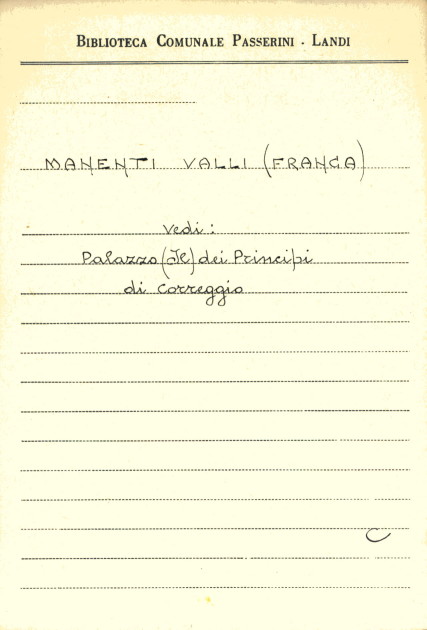 BIBLIOTECA COMUNALE PASSERINI - LANDI
MANENTI VALLI (FRANCA)
Vedi:
Palazzo (Il) dei Principi
di Correggio
C